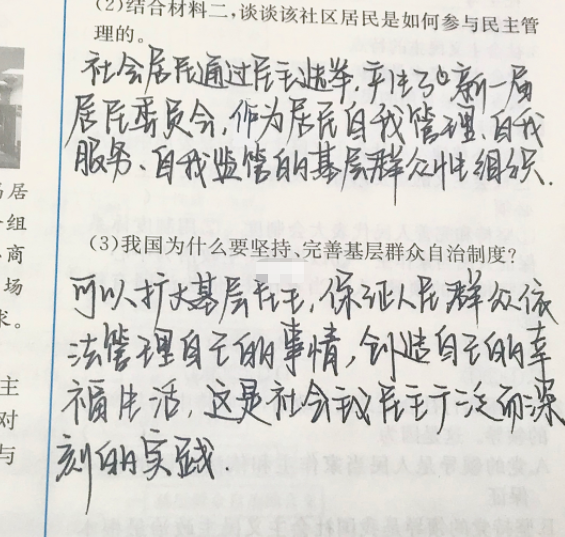 (2)结合材料二,谈谈该社区居民是如何参与民主管
理的。
社会居民通过民主选举,产生了新一届
居民委员会,作为居民自我管理、自我
服务、自我监管的基层群众性组织.
(3)我国为什么要坚持、完善基层群众自治制度?
可以扩大基层民主,保证人民群众依
法管理自己的事情,创造自己的幸
福生活,这是社会主义民主广泛而深
刻的实践.
居
组
商
场
求。
主
对
与
A.党的领导是人民当家作主和依
保证